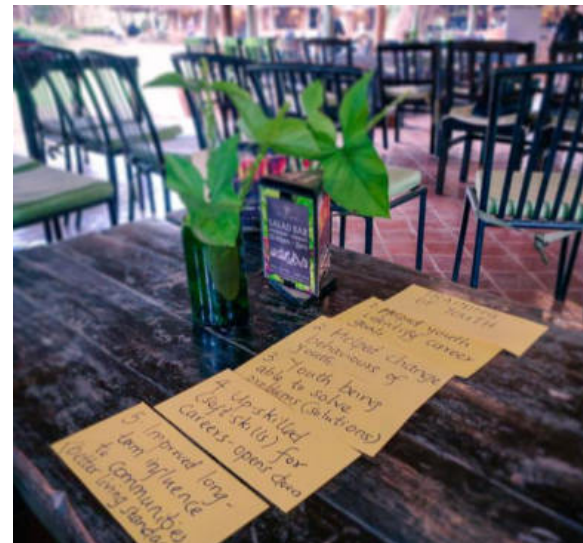 SALAD BAR
OF YOUTH
Helped youth
identify career
goals
2. Helped change
behaviours of
youth
3. Youth being
able to solve
problems (solutions)
4. Up-skilled
(soft skills) for
Careers - opens doors
5. Improved long-
term influence
to communities
(better living standa